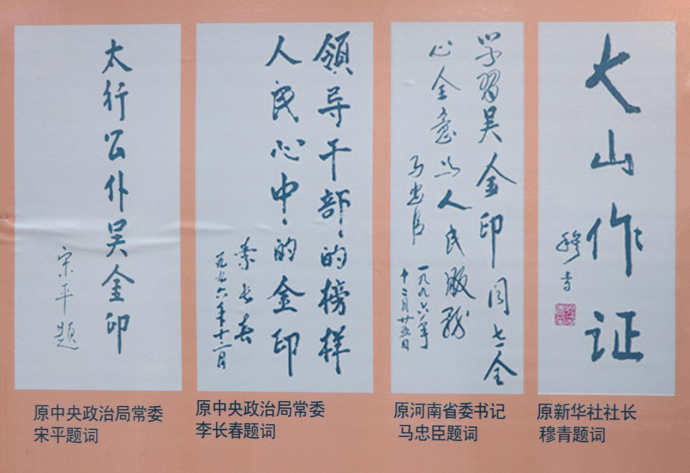 太行公仆吴金印
宋平题
原中央政治局常委
宋平题词
领导干部的榜样
人民心中的金印
李长春
一九九六年十二月
原中央政治局常委
李长春题词
学习吴金印同志全
心全意为人民服务
马忠臣
一九九六年
十二月廿五日
原河南省委书记
马忠臣题词
大山作证
穆青
原新华社社长
穆青题词